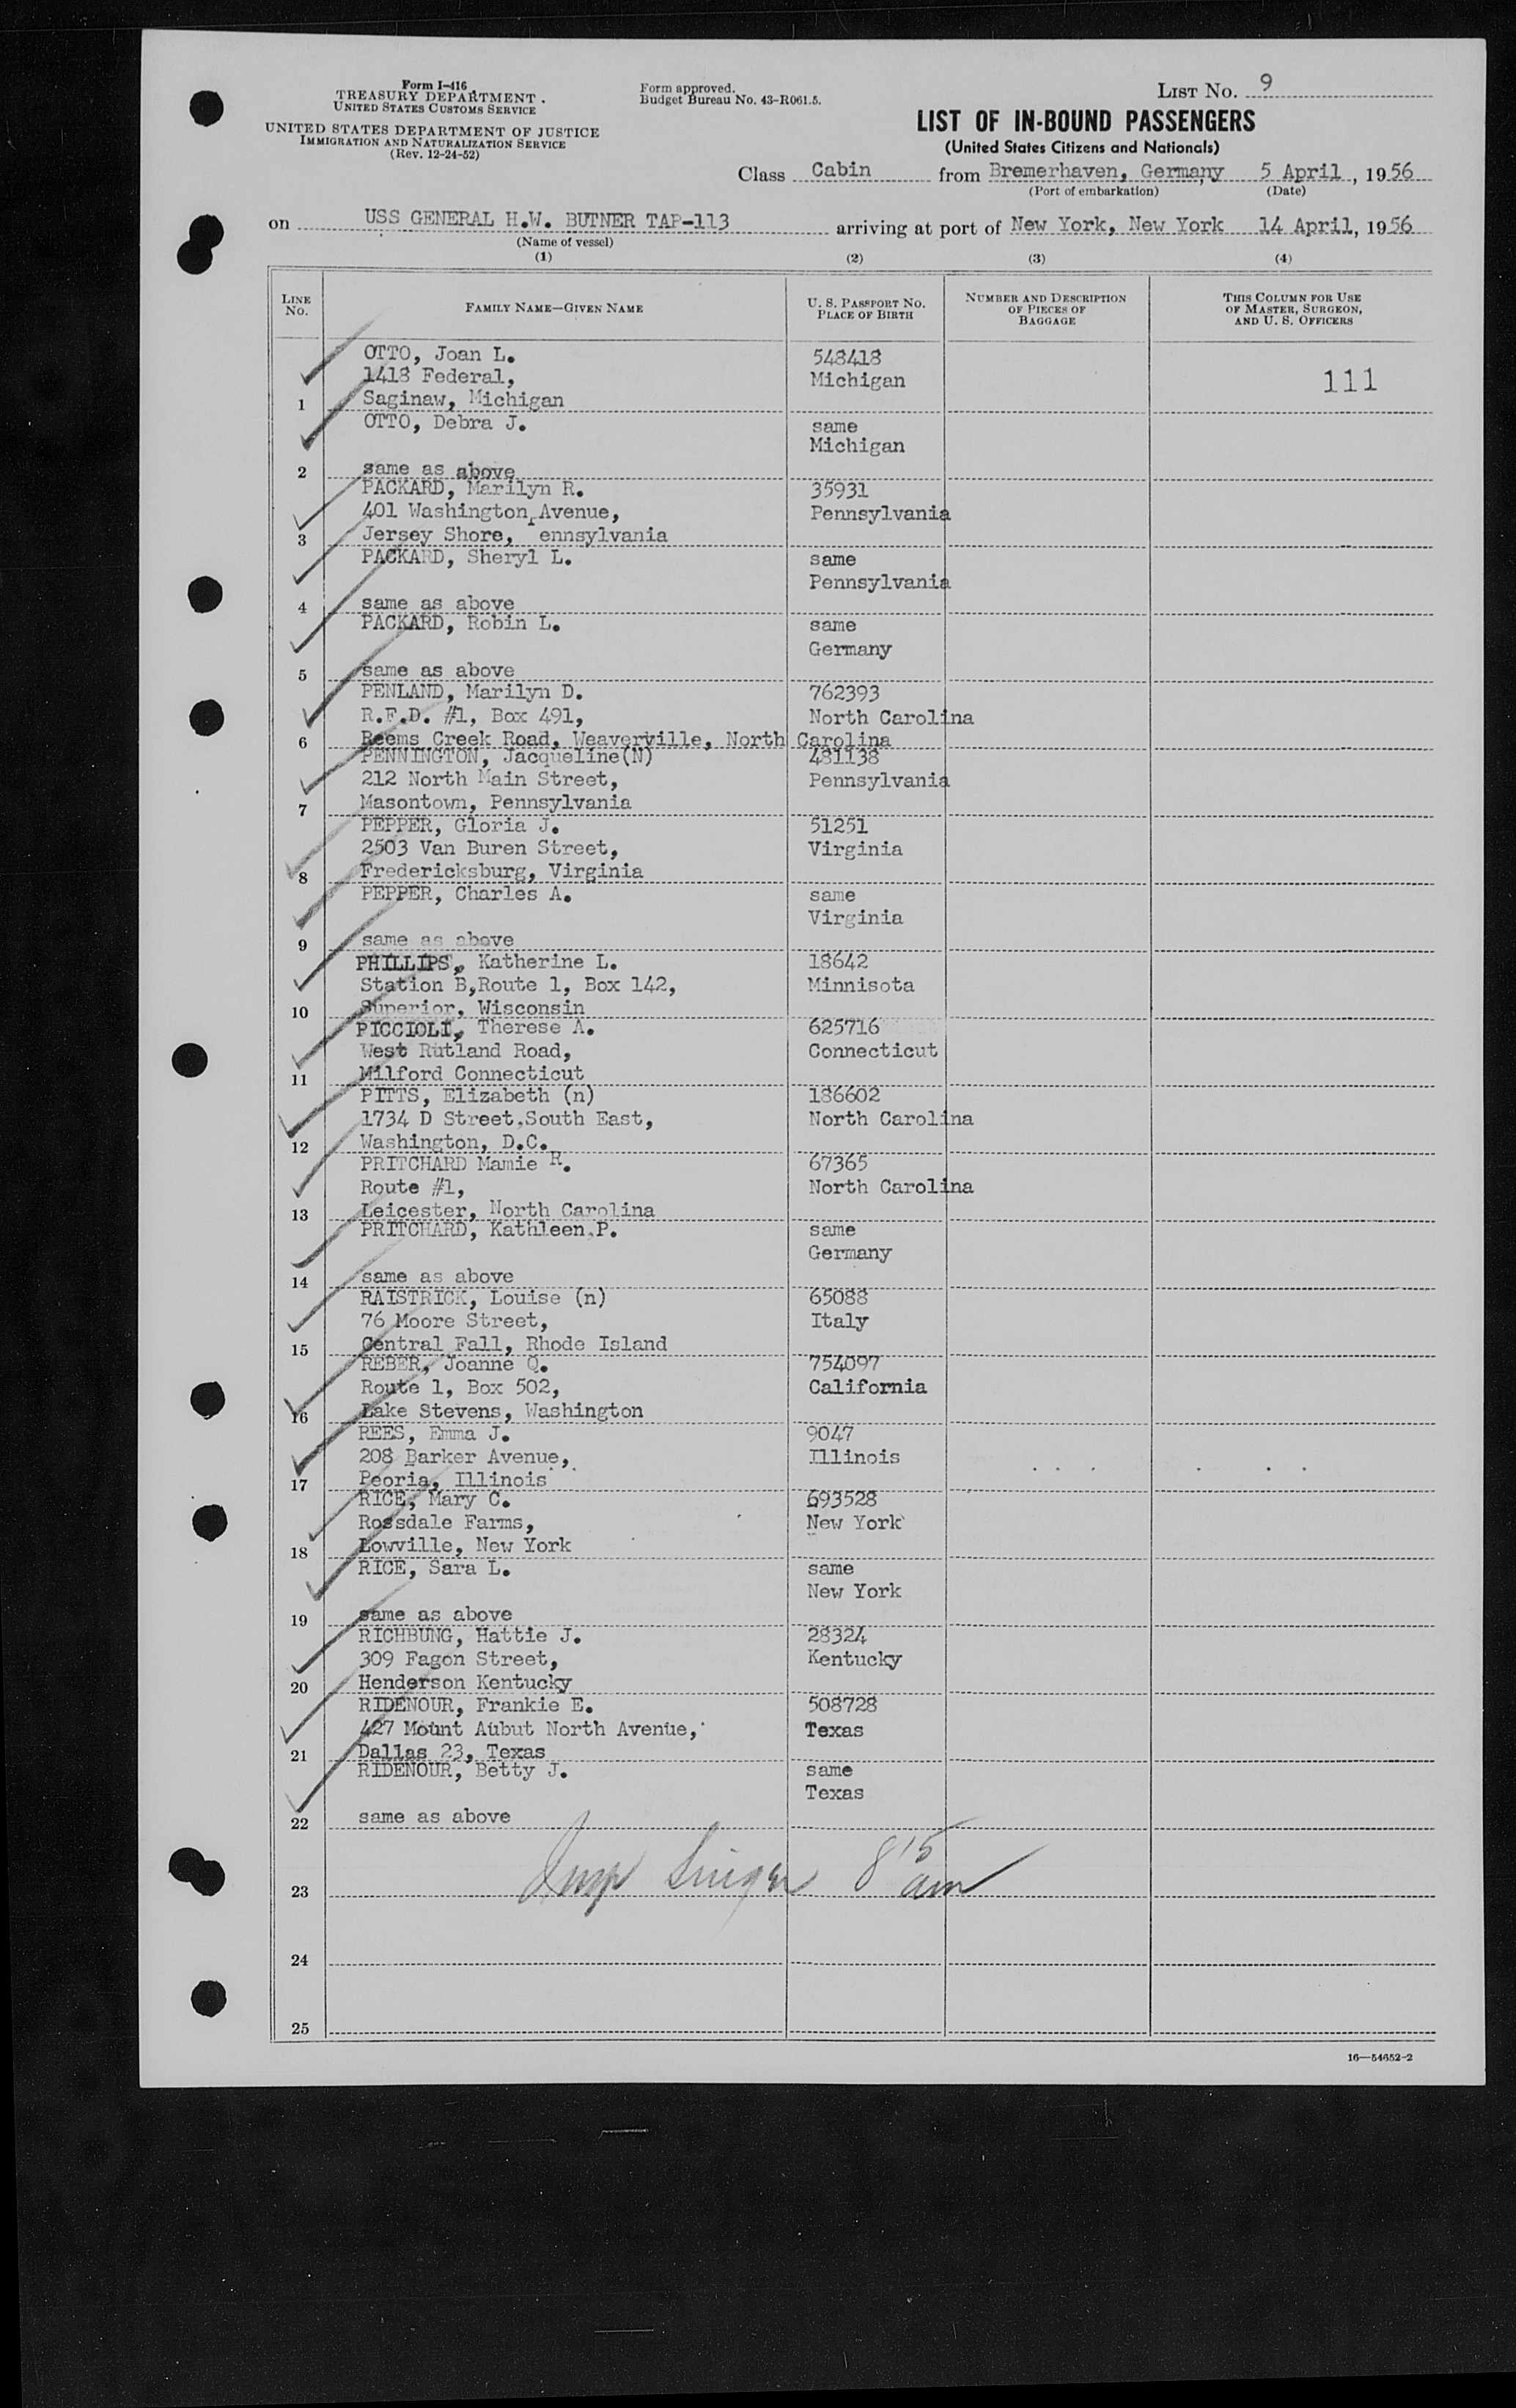 Form I-416
TREASURY DEPARTMENT
UNITED STATES CUSTOMS SERVICE
UNITED STATES DEPARTMENT OF JUSTICE
IMMIGRATION AND NATURALIZATION SERVICE
(Rev. 12-24-52)
Form approved.
Budget Bureau No. 43-R061.5.
LIST NO. 9
LIST OF IN-BOUND PASSENGERS
(United States Citizens and Nationals)
Class Cabin from Bremerhaven, Germany 5 April, 1956
(Port of embarkation) (Date)
on USS GENERAL H.W. BUTNER TAP-113 arriving at port of New York, New York 14 April, 1956
(Name of vessel)
(1) (2) (3) (4)
LINE NO. FAMILY NAME—GIVEN NAME U. S. PASSPORT NO. PLACE OF BIRTH NUMBER AND DESCRIPTION OF PIECES OF BAGGAGE THIS COLUMN FOR USE OF MASTER, SURGEON, AND U. S. OFFICERS
OTTO, Joan L. 548418
1418 Federal, Michigan 111
1 Saginaw, Michigan
OTTO, Debra J. same
Michigan
2 same as above
PACKARD, Marilyn R. 35931
401 Washington Avenue, Pennsylvania
3 Jersey Shore, Pennsylvania
PACKARD, Sheryl L. same
Pennsylvania
4 same as above
PACKARD, Robin L. same
Germany
5 same as above
PENLAND, Marilyn D. 762393
R.F.D. #1, Box 491, North Carolina
6 Reems Creek Road, Weaverville, North Carolina
PENNINGTON, Jacqueline(N) 481138
212 North Main Street, Pennsylvania
7 Masontown, Pennsylvania
PEPPER, Gloria J. 51251
2503 Van Buren Street, Virginia
8 Fredericksburg, Virginia
PEPPER, Charles A. same
Virginia
9 same as above
PHILLIPS, Katherine L. 18642
Station B,Route 1, Box 142, Minnisota
10 Superior, Wisconsin
PICCIOLI, Therese A. 625716
West Rutland Road, Connecticut
11 Milford Connecticut
PITTS, Elizabeth (n) 186602
1734 D Street,South East, North Carolina
12 Washington, D.C.
PRITCHARD Mamie R. 67365
Route #1, North Carolina
13 Leicester, North Carolina
PRITCHARD, Kathleen P. same
Germany
14 same as above
RAISTRICK, Louise (n) 65088
76 Moore Street, Italy
15 Central Fall, Rhode Island
REBER, Joanne Q. 754097
Route 1, Box 502, California
16 Lake Stevens, Washington
REES, Emma J. 9047
208 Barker Avenue, Illinois
17 Peoria, Illinois
RICE, Mary C. 693528
Rossdale Farms, New York
18 Lowville, New York
RICE, Sara L. same
New York
19 same as above
RICHBUNG, Hattie J. 28324
309 Fagon Street, Kentucky
20 Henderson Kentucky
RIDENOUR, Frankie E. 508728
427 Mount Aubut North Avenue, Texas
21 Dallas 23, Texas
RIDENOUR, Betty J. same
Texas
22 same as above
Insp Singer 8 15 am
23
24
25
16—54652-2